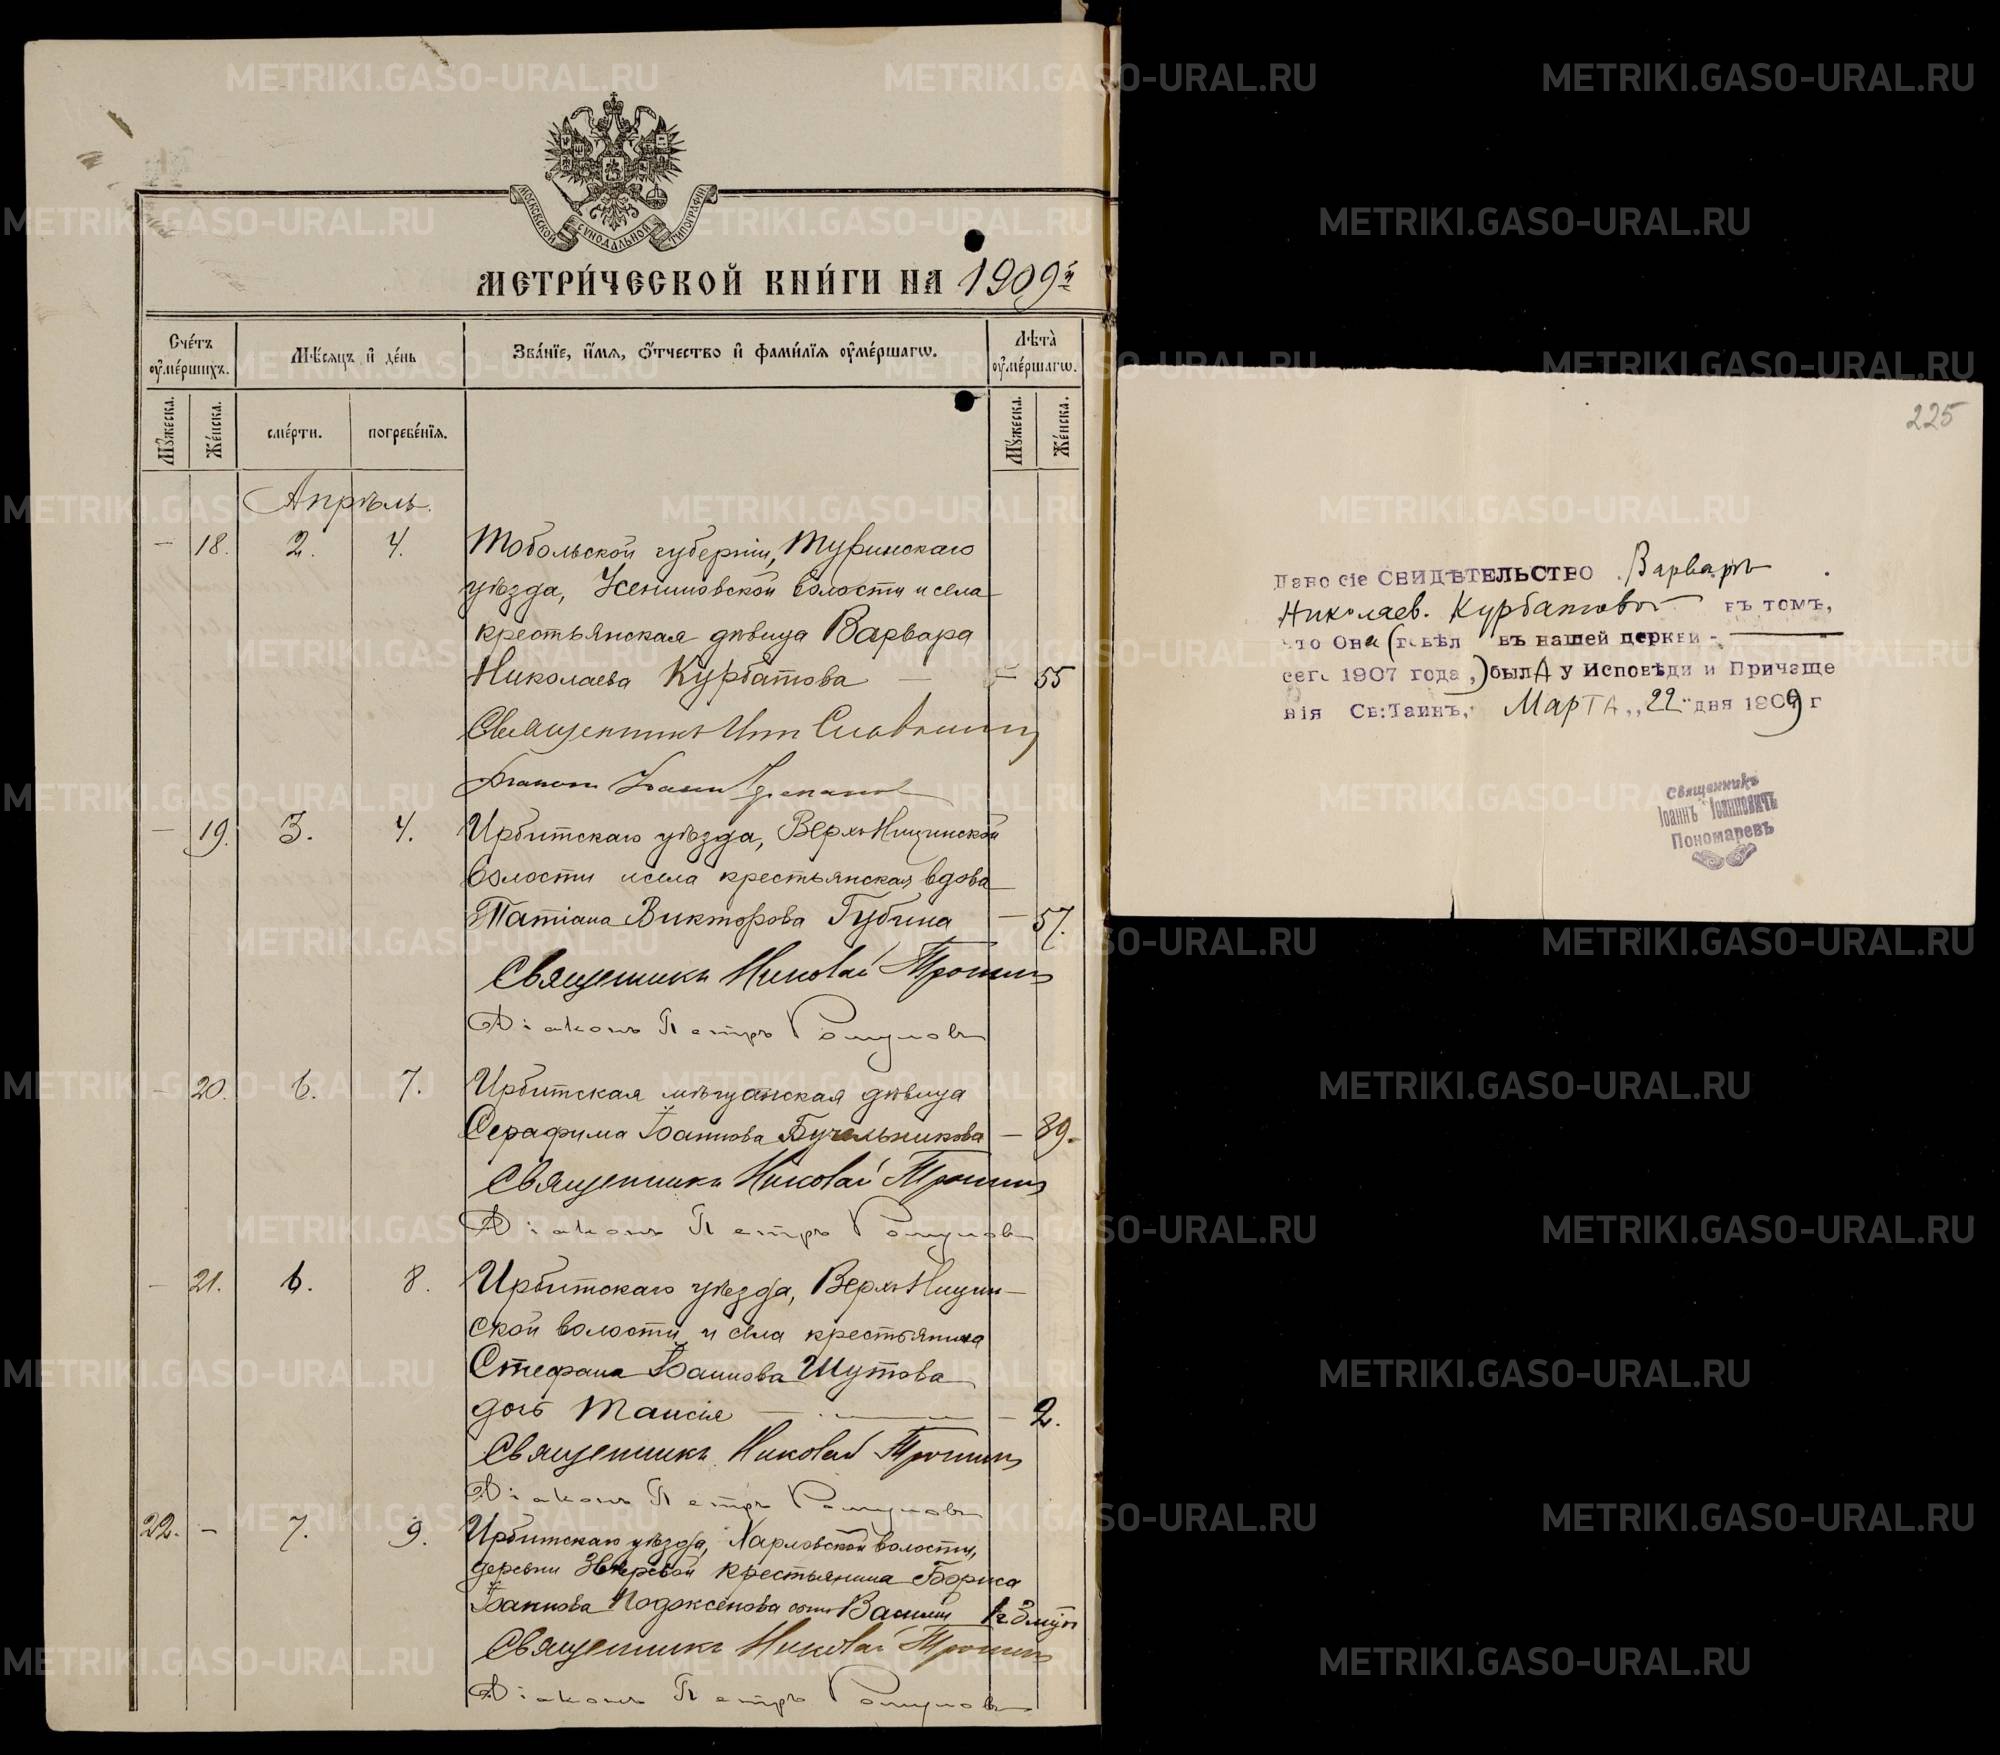 МОСКОВСКОЙ СѴНОДАЛЬНОЙ ТИПОГРАФИИ
МЕТРИ́ЧЕСКОЙ КНИ́ГИ НА 1909й
Сче́тъ ᲂу҆ме́ршихъ.
Мѣ́сяцъ и҆ де́нь
Зва́нїе, и҆́мѧ, ѻ҆́тчество и҆ фами́лїѧ ᲂу҆ме́ршагѡ.
Лѣта̀ ᲂу҆ме́ршагѡ.
Мꙋ́жеска.
Же́нска.
сме́рти.
погребе́нїѧ.
Мꙋ́жеска.
Же́нска.
Апрѣль.
— 18. 2. 4. Тобольской губерніи, Туринскаго
уѣзда, Усениновской волости и села
крестьянская дѣвица Варвара
Николаева Курбатова — 55
Священникъ
Діаконъ Іоаннъ
— 19. 3. 4. Ирбитскаго уѣзда, Верх-Ницинской
волости и села крестьянская вдова
Татіана Викторова Губина — 57.
Священникъ Николай Трошинъ
Діаконъ Петръ Ромуловъ
— 20. 6. 7. Ирбитская мѣщанская дѣвица
Серафима Іоаннова Бучельникова — 89.
Священникъ Николай Трошинъ
Діаконъ Петръ Ромуловъ
— 21. 6. 8. Ирбитскаго уѣзда, Верх-Ницин-
ской волости и села крестьянина
Стефана Іоаннова Шутова
дочь Таисія — 2.
Священникъ Николай Трошинъ
Діаконъ Петръ Ромуловъ
22. — 7. 9. Ирбитскаго уѣзда, Харловской волости,
деревни Зверевой крестьянина Бориса
Іоаннова Подоксенова сынъ Василій
Священникъ Николай Трошинъ
Діаконъ Петръ Ромуловъ
225
Дано сіе СВИДѢТЕЛЬСТВО Варварѣ
Николаев. Курбатовой въ томъ,
что Она (говѣл въ нашей церкви -
сего 1907 года,) былА у Исповѣди и Причаще
нія Св:Таинъ, МарТА „22" дня 1909 г
Священникъ
Іоаннъ Іоанновичъ
Пономаревъ
METRIKI.GASO-URAL.RU